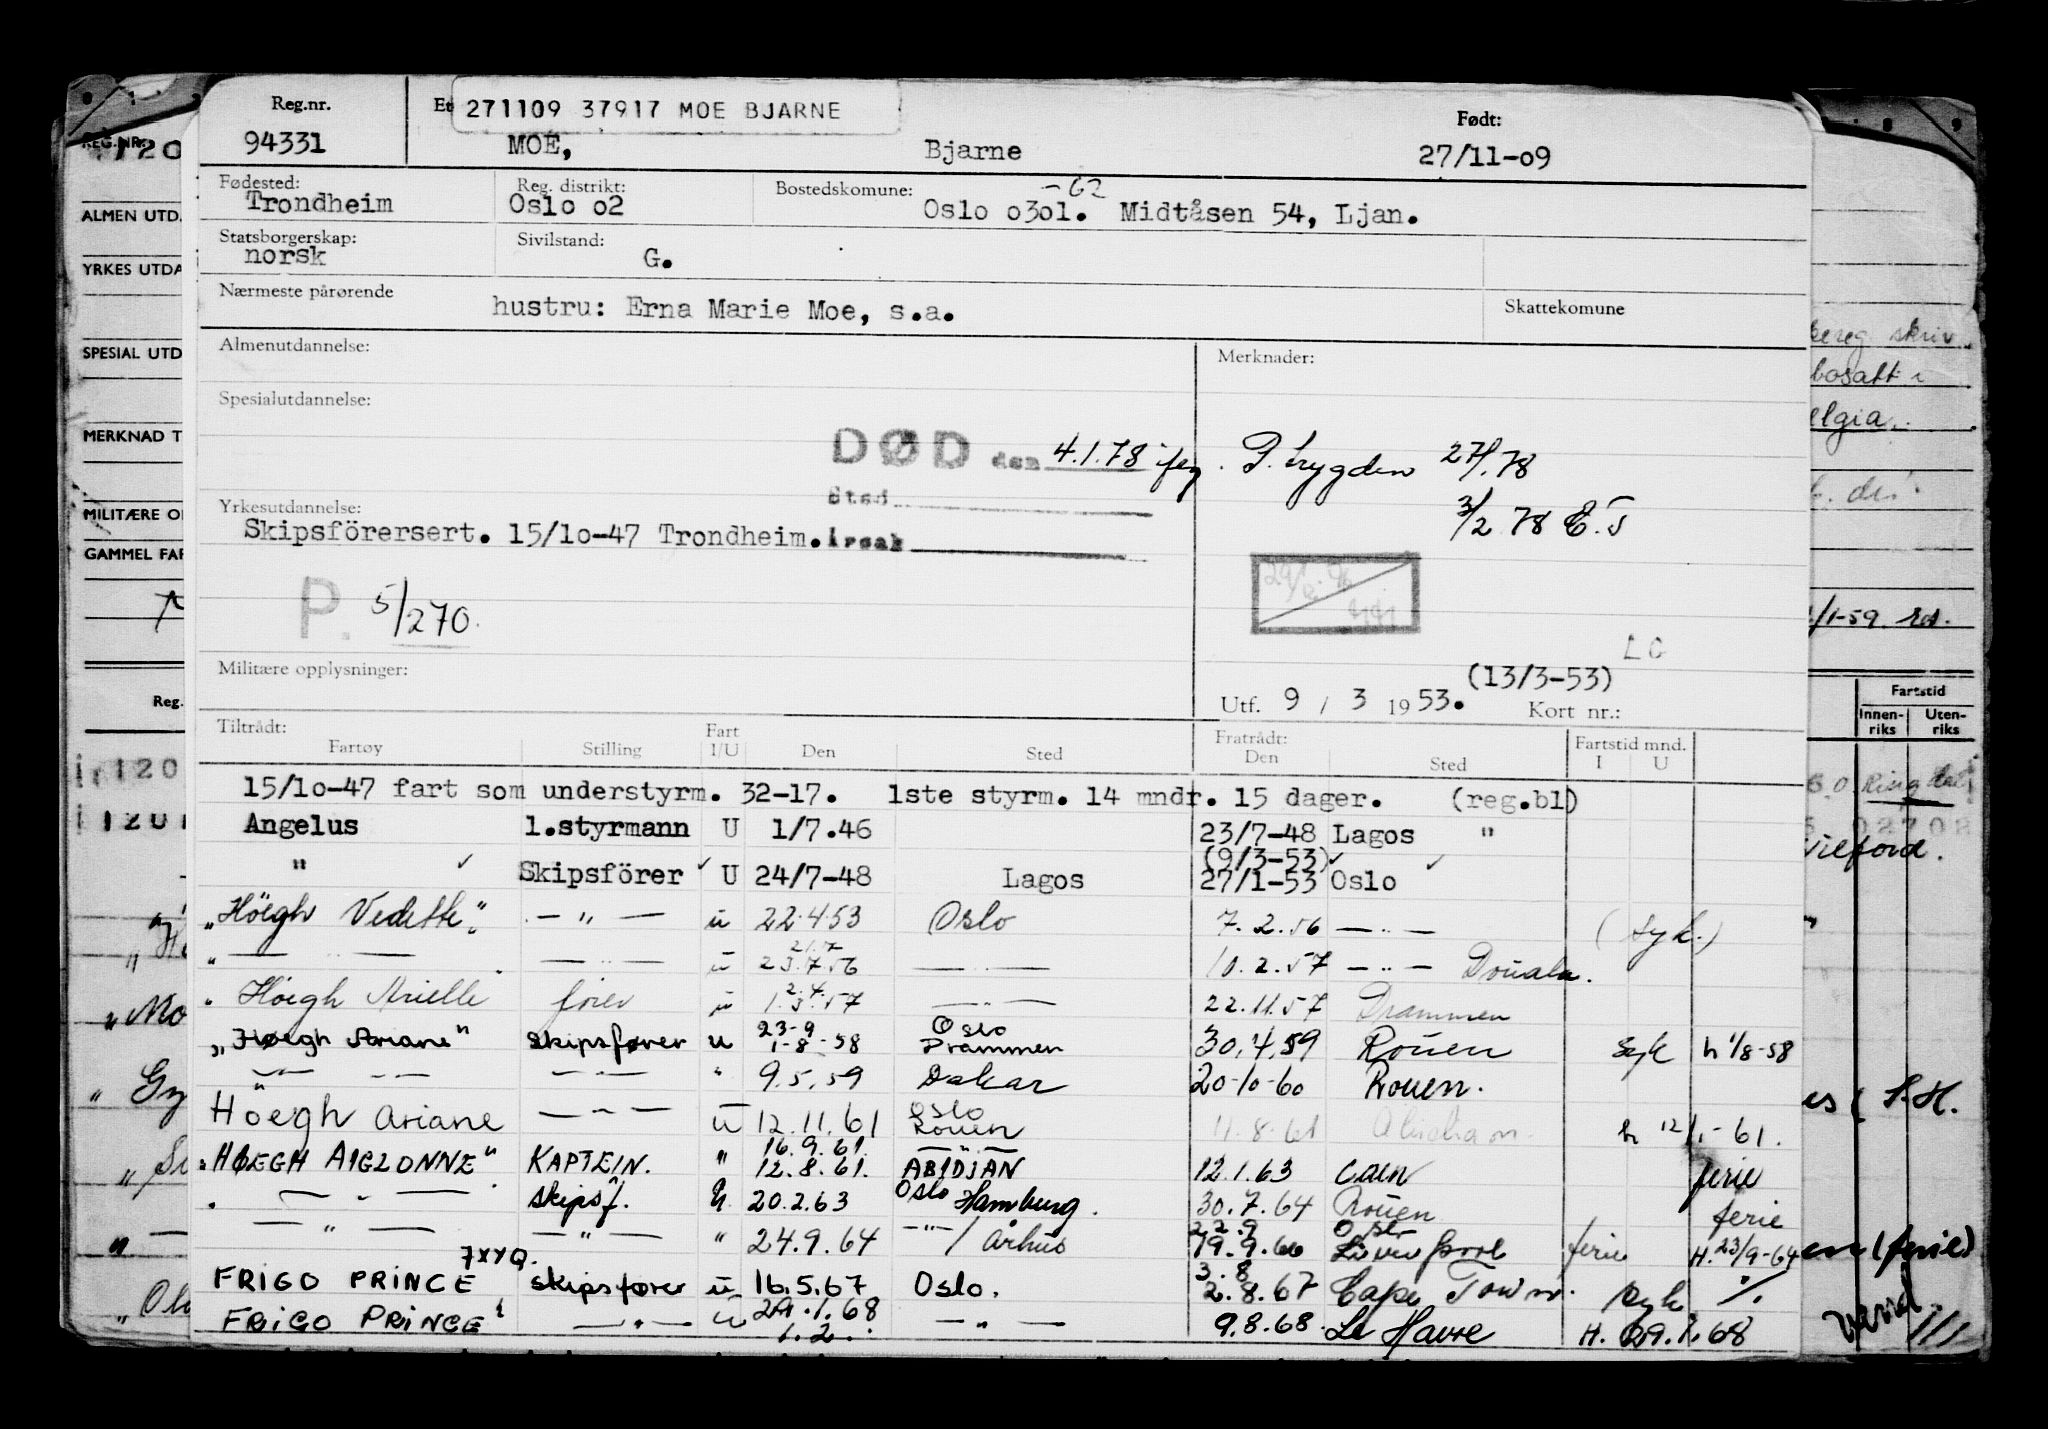 Reg.nr. Et 271109 37917 MOE BJARNE Født:
94331 MOE, Bjarne 27/11-09
Fødested: Reg. distrikt: Bostedskomune: -62
Trondheim Oslo o2 Oslo o3o1. Midtåsen 54, Ljan.
Statsborgerskap: Sivilstand:
norsk G.
Nærmeste pårørende hustru: Erna Marie Moe, s.a. Skattekomune
Almenutdannelse: Merknader:
Spesialutdannelse:
DØD den 4.1.78 P. trygden 27/1.78
Sted
3/2 78 E.T
Yrkesutdannelse:
Skipsförersert. 15/1o-47 Trondheim. Årsak
P. 5/270.
LG
Militære opplysninger: (13/3-53)
Utf. 9 / 3 1953. Kort nr.:
Tiltrådt: Fart Fratrådt: Fartstid mnd.
Fartøy Stilling I/U Den Sted Den Sted I U
15/1o-47 fart som understyrm. 32-17. 1ste styrm. 14 mndr. 15 dager. (reg.bl)
Angelus 1.styrmann U 1/7.46 23/7-48 Lagos "
(9/3-53)
" Skipsförer U 24/7-48 Lagos 27/1-53 Oslo
"Höegh Vedette" — " — u 22.4.53 Oslo 7.2.56 — " — (syk.)
21.7
" — — " — u 23.7.56 — " — 10.2.57 — " — Douala.
2.4.
" Höegh Arielle" fører u 1.3.57 — " — 22.11.57 Drammen
23-9 Oslo
"Høegh Ariane" skipsfører u 1-8-58 Drammen 30.4.59 Rouen syk h 1/8-58
— " — — " — " 9.5.59 Dakar 20-10-60 Rouen.
Oslo
Höegh Ariane — " — u 12.11.61 Rouen 11.8.61 h 12/1-61.
16.9.61. — " —
"HØEGH AIGLONNE" KAPTEIN. " 12.8.61. ABIDJAN 12.1.63 Caen ferie
" — " — skipsf. u. 20.2.63 Oslo Hamburg. 30.7.64 Rouen ferie
22.9 Oslo
— " — — " — " 24.9.64 — " — / Århus 19.9.66 Liverpool ferie H. 23/9-64
7XYQ. 3.8
FRIGO PRINCE skipsfører u 16.5.67 Oslo. 2.8.67 Cape Town. syk %
FRIGO PRINCE — " — u 29.1.68 — " — 9.8.68 Le Havre H. 29.1.68
1.2.
REG.NR.
120
ALMEN UTD.
YRKES UTDA
SPESIAL UTD
MERKNAD T
MILITÆRE O
GAMMEL FAR
Reg.
120
1201
"Mo
skriv.
bosatt i
elgia.
1/1-59
Fartstid
Innen-riks Uten-riks
Ringdal
02702
vilford.
es ( S.H.
en (ferie)